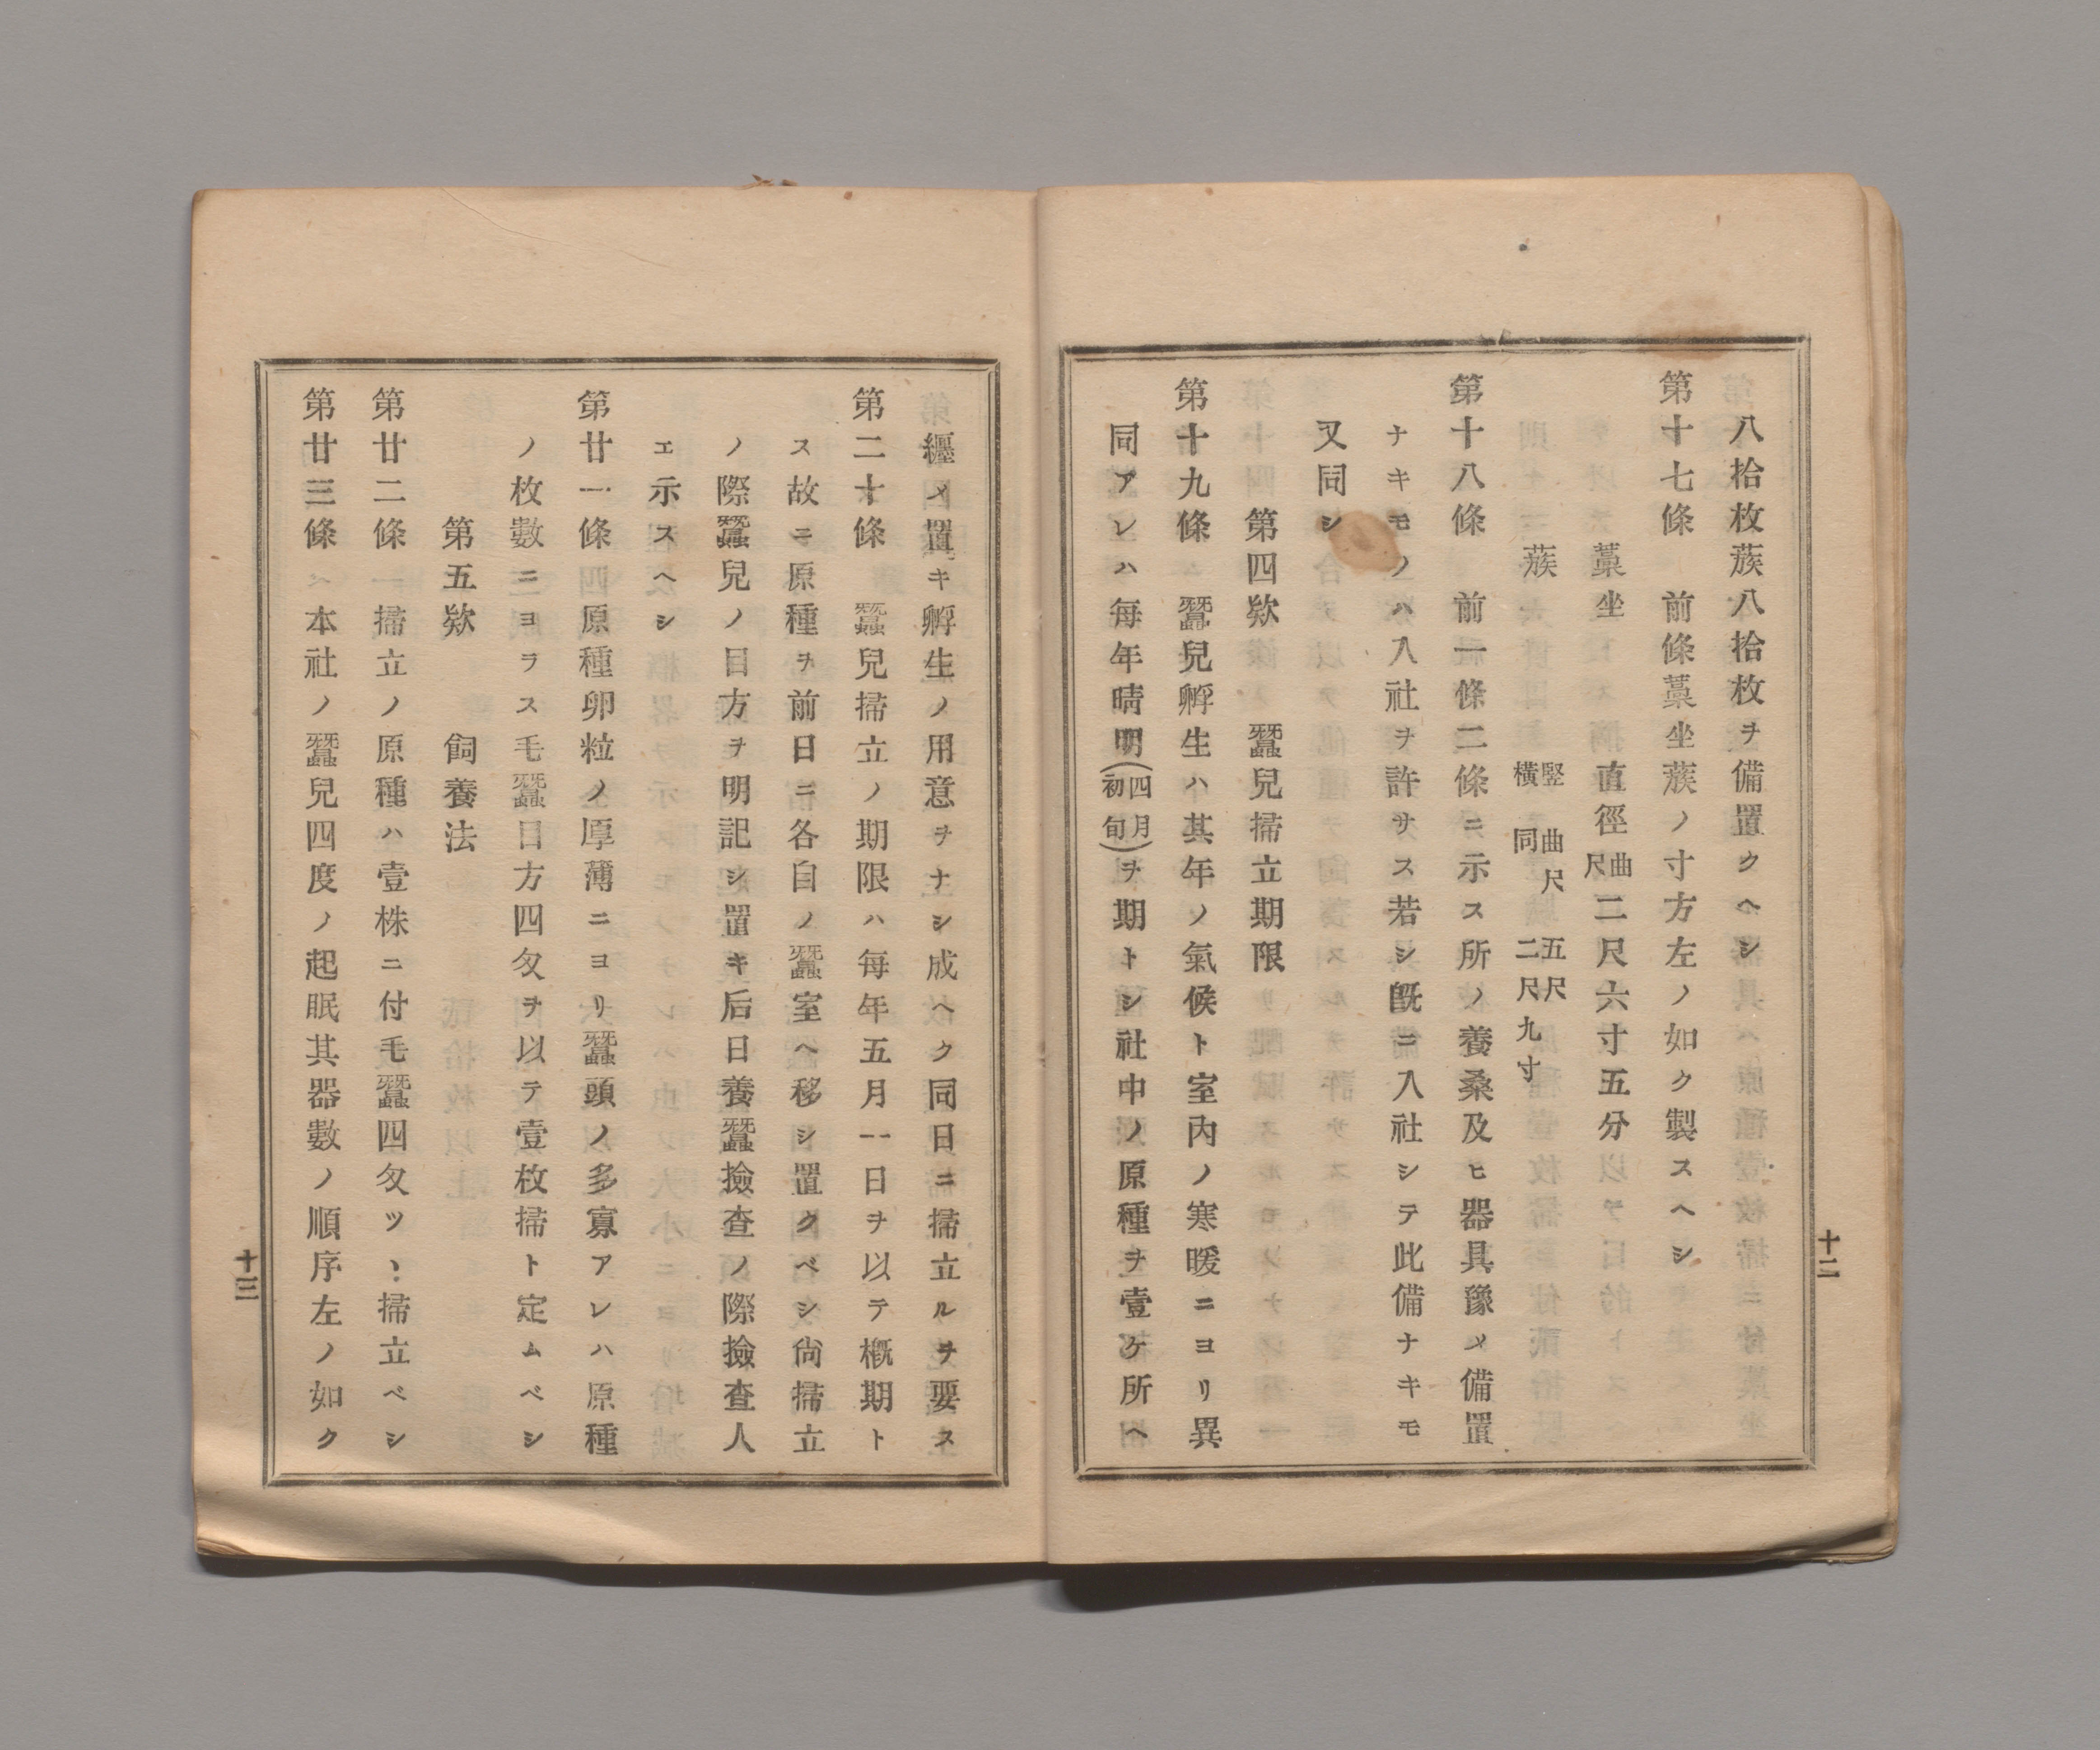 八拾枚蔟八拾枚ヲ備置クヘシ
第十七條　前條藁坐蔟ノ寸方左ノ如ク製スヘシ
藁坐　直徑曲尺二尺六寸五分
蔟　竪曲尺五尺
横同二尺九寸
第十八條　前一條二條ニ示ス所ノ養桑及ヒ器具豫メ備置
ナキモノハ入社ヲ許サス若シ既ニ入社シテ此備ナキモ
又同シ
第四欵　蠶兒掃立期限
第十九條　蠶兒孵生ハ其年ノ氣候ト室内ノ寒暖ニヨリ異
同アレハ毎年晴明(四月初旬)ヲ期トシ社中ノ原種ヲ壹ケ所ヘ
十二
纒メ置キ孵生ノ用意ヲナシ成ヘク同日ニ掃立ルヲ要ス
第二十條　蠶兒掃立ノ期限ハ毎年五月一日ヲ以テ概期ト
ス故ニ原種ヲ前日ニ各自ノ蠶室ヘ移シ置クベシ尙掃立
ノ際蠶兒ノ目方ヲ明記シ置キ后日養蠶撿查ノ際撿查人
エ示スヘシ
第廿一條　原種卵粒ノ厚薄ニヨリ蠶頭ノ多寡アレハ原種
ノ枚數ニヨラス毛蠶目方四匁ヲ以テ壹枚掃ト定ムベシ
第五欵　飼養法
第廿二條　掃立ノ原種ハ壹株ニ付毛蠶四匁ツヽ掃立ベシ
第廿三條　本社ノ蠶兒四度ノ起眠其器數ノ順序左ノ如ク
十三